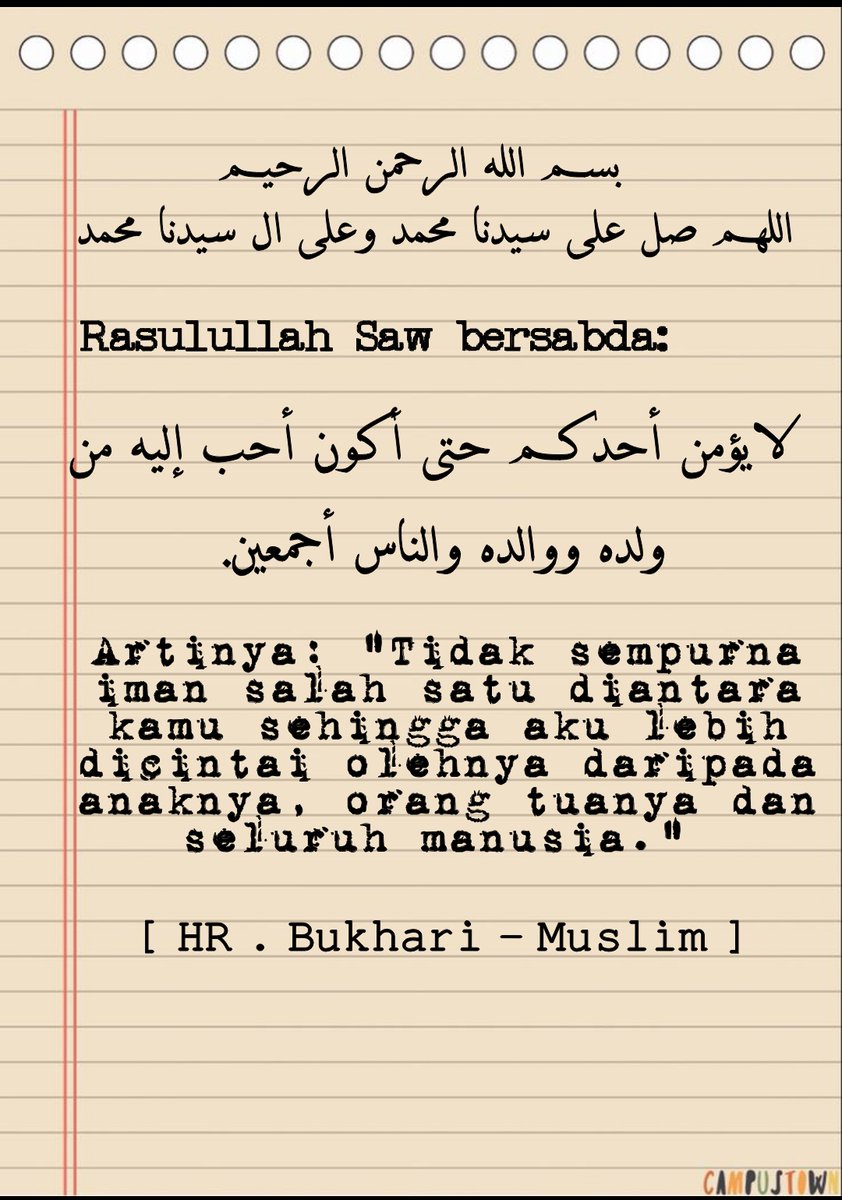 بسم الله الرحمن الرحيم
اللهم صل على سيدنا محمد وعلى ال سيدنا محمد
Rasulullah Saw bersabda:
لا يؤمن أحدكم حتى أكون أحب إليه من
ولده ووالده والناس أجمعين.
Artinya: "Tidak sempurna
iman salah satu diantara
kamu sehingga aku lebih
dicintai olehnya daripada
anaknya, orang tuanya dan
seluruh manusia."
[ HR . Bukhari - Muslim ]
CAMPUSTOWN